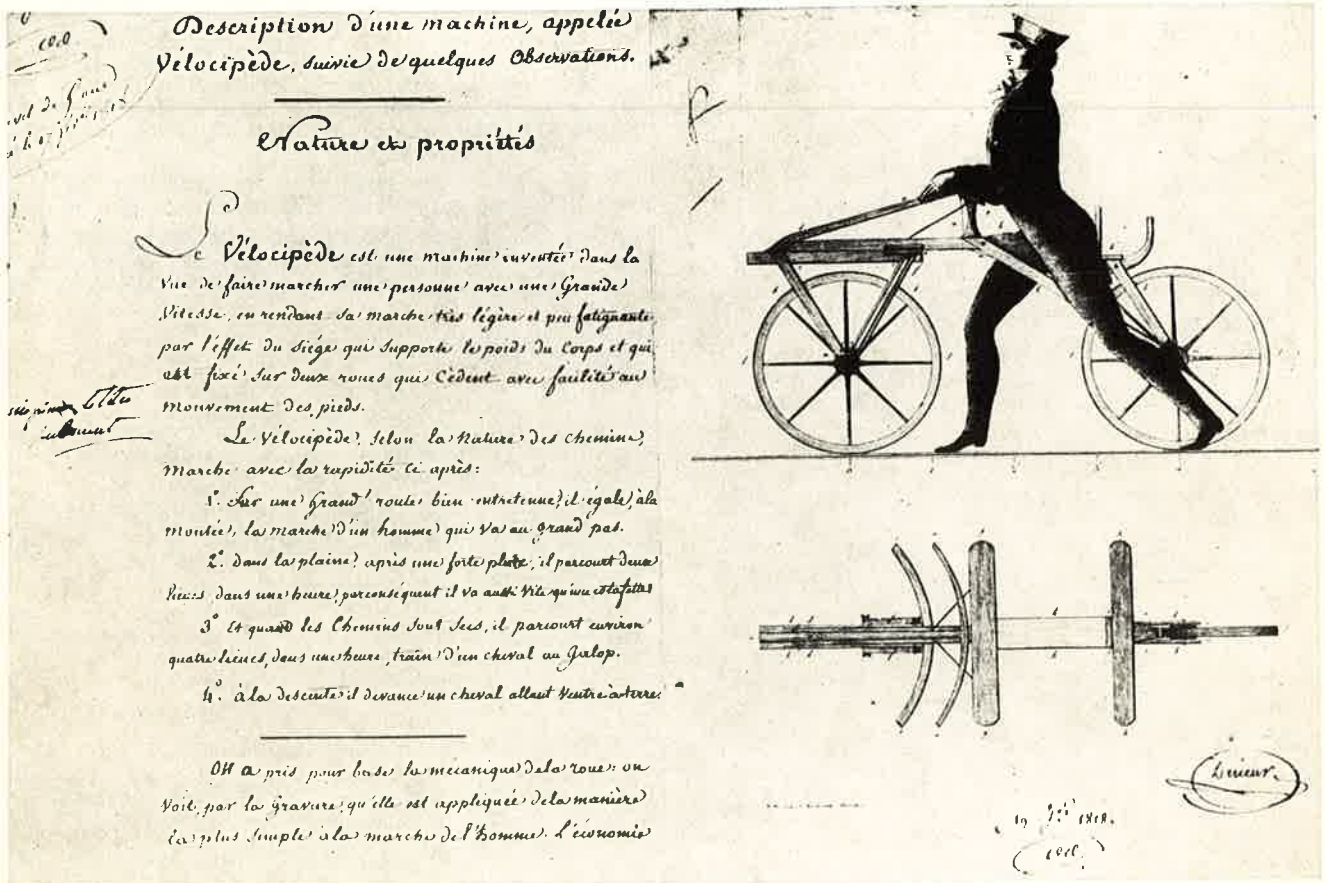 Description d'une machine, appelée
Vélocipède, suivie de quelques Observations.
Nature et propriétés
Le Vélocipède est une machine inventée dans la
Vue de faire marcher une personne avec une Grande
Vitesse, en rendant sa marche très légère et peu fatignante
par l'éffet du siége qui supporte le poids du Corps et qui
est fixé sur deux roues qui Cèdent avec facilité au
mouvement des pieds.
Le Vélocipède, selon la Nature des chemins,
marche avec la rapidité ci après:
1° Sur une Grand' route bien entretenue, il égale, à la
montée, la marche d'un homme qui va au grand pas.
2° dans la plaine, après une forte pluie, il parcourt deux
lieues, dans une heure, parconséquent il va aussi Vite qu'une estafette
3° Et quand les Chemins sont secs, il parcourt environ
quatre lieues, dans une heure, train d'un cheval au Galop.
4° à la descente il devance un cheval allant Ventre à terre.
On a pris pour base la mécanique de la roue: on
Voit, par la Gravure, qu'elle est appliquée de la manière
la plus simple à la marche de l'homme. L'économie
Dineur.
19 1818.